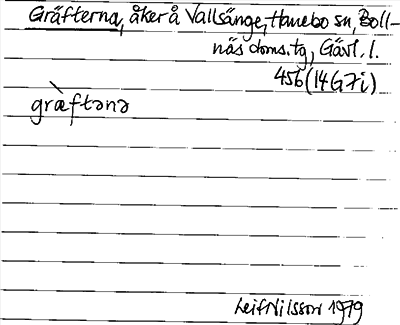 Gräfterna, åker å Vallsänge, Hanebo sn, Boll-
näs doms.tg, Gävl. l.
456 (14G7i)
grὰftənə
Leif Nilsson 1979